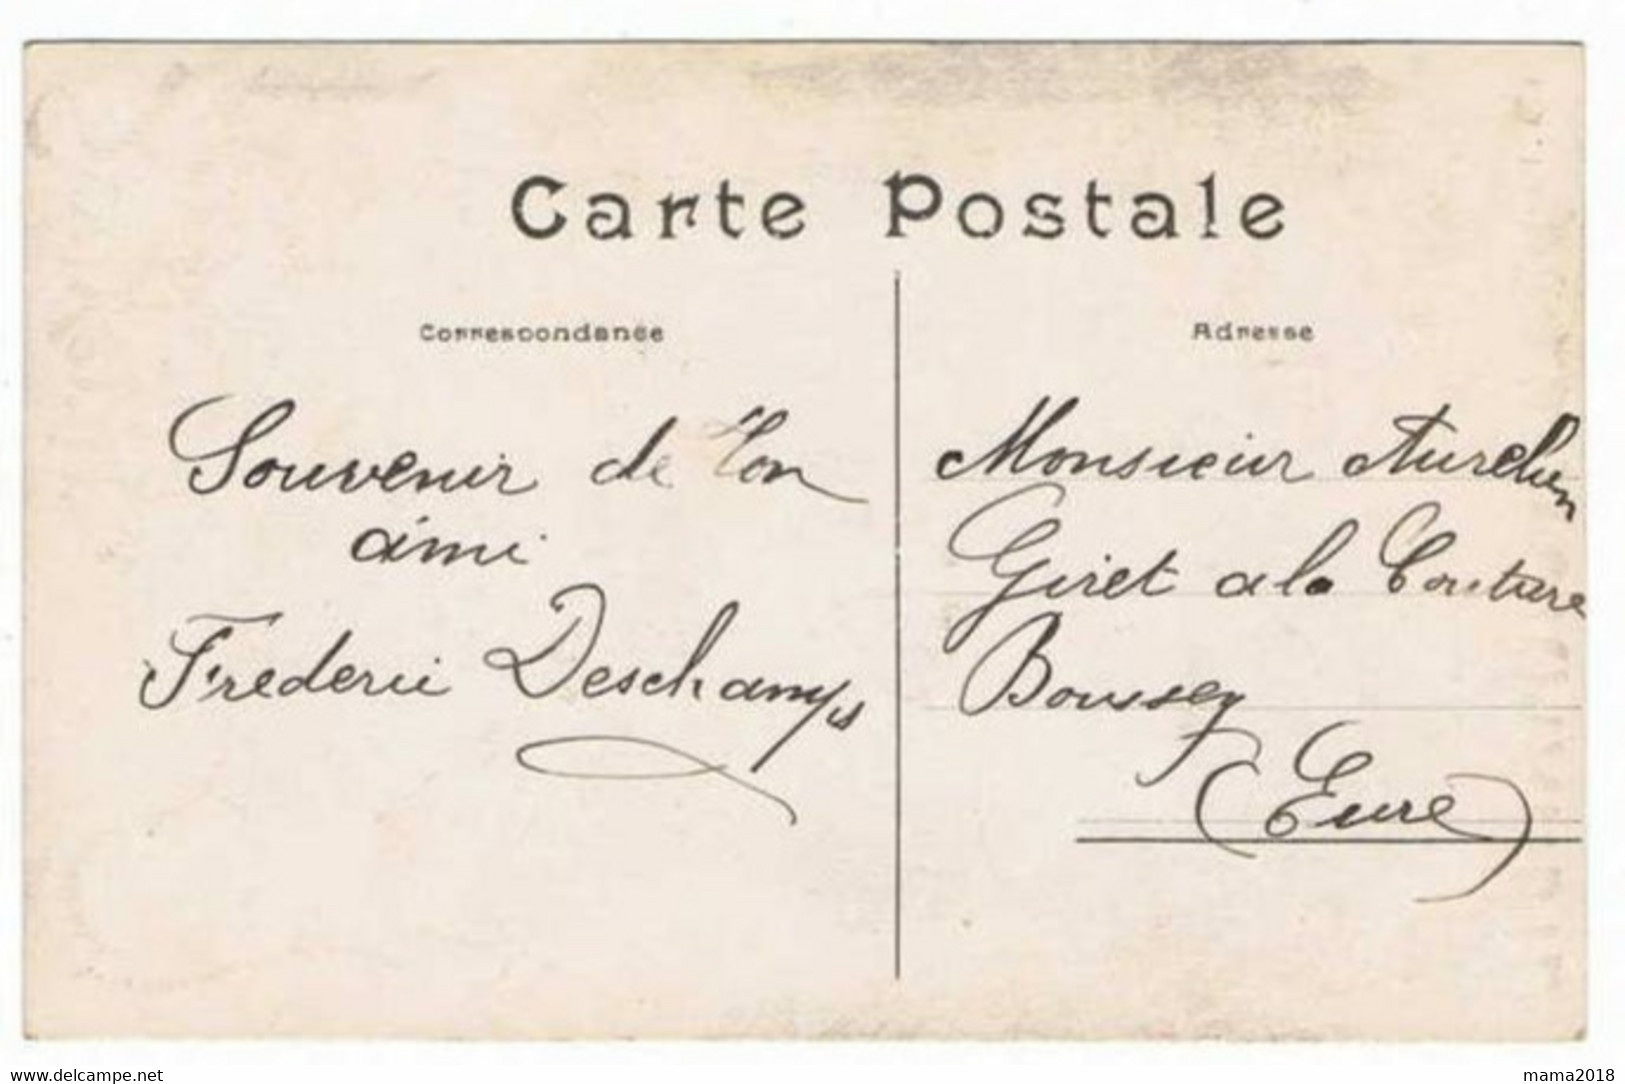 Carte Postale
Correspondance
Adresse
Souvenir de ton
ami
Frederic Deschamps
Monsieur Aurelien
Giret a la Couture
Boussey
(Eure)
www.delcampe.net
mama2018